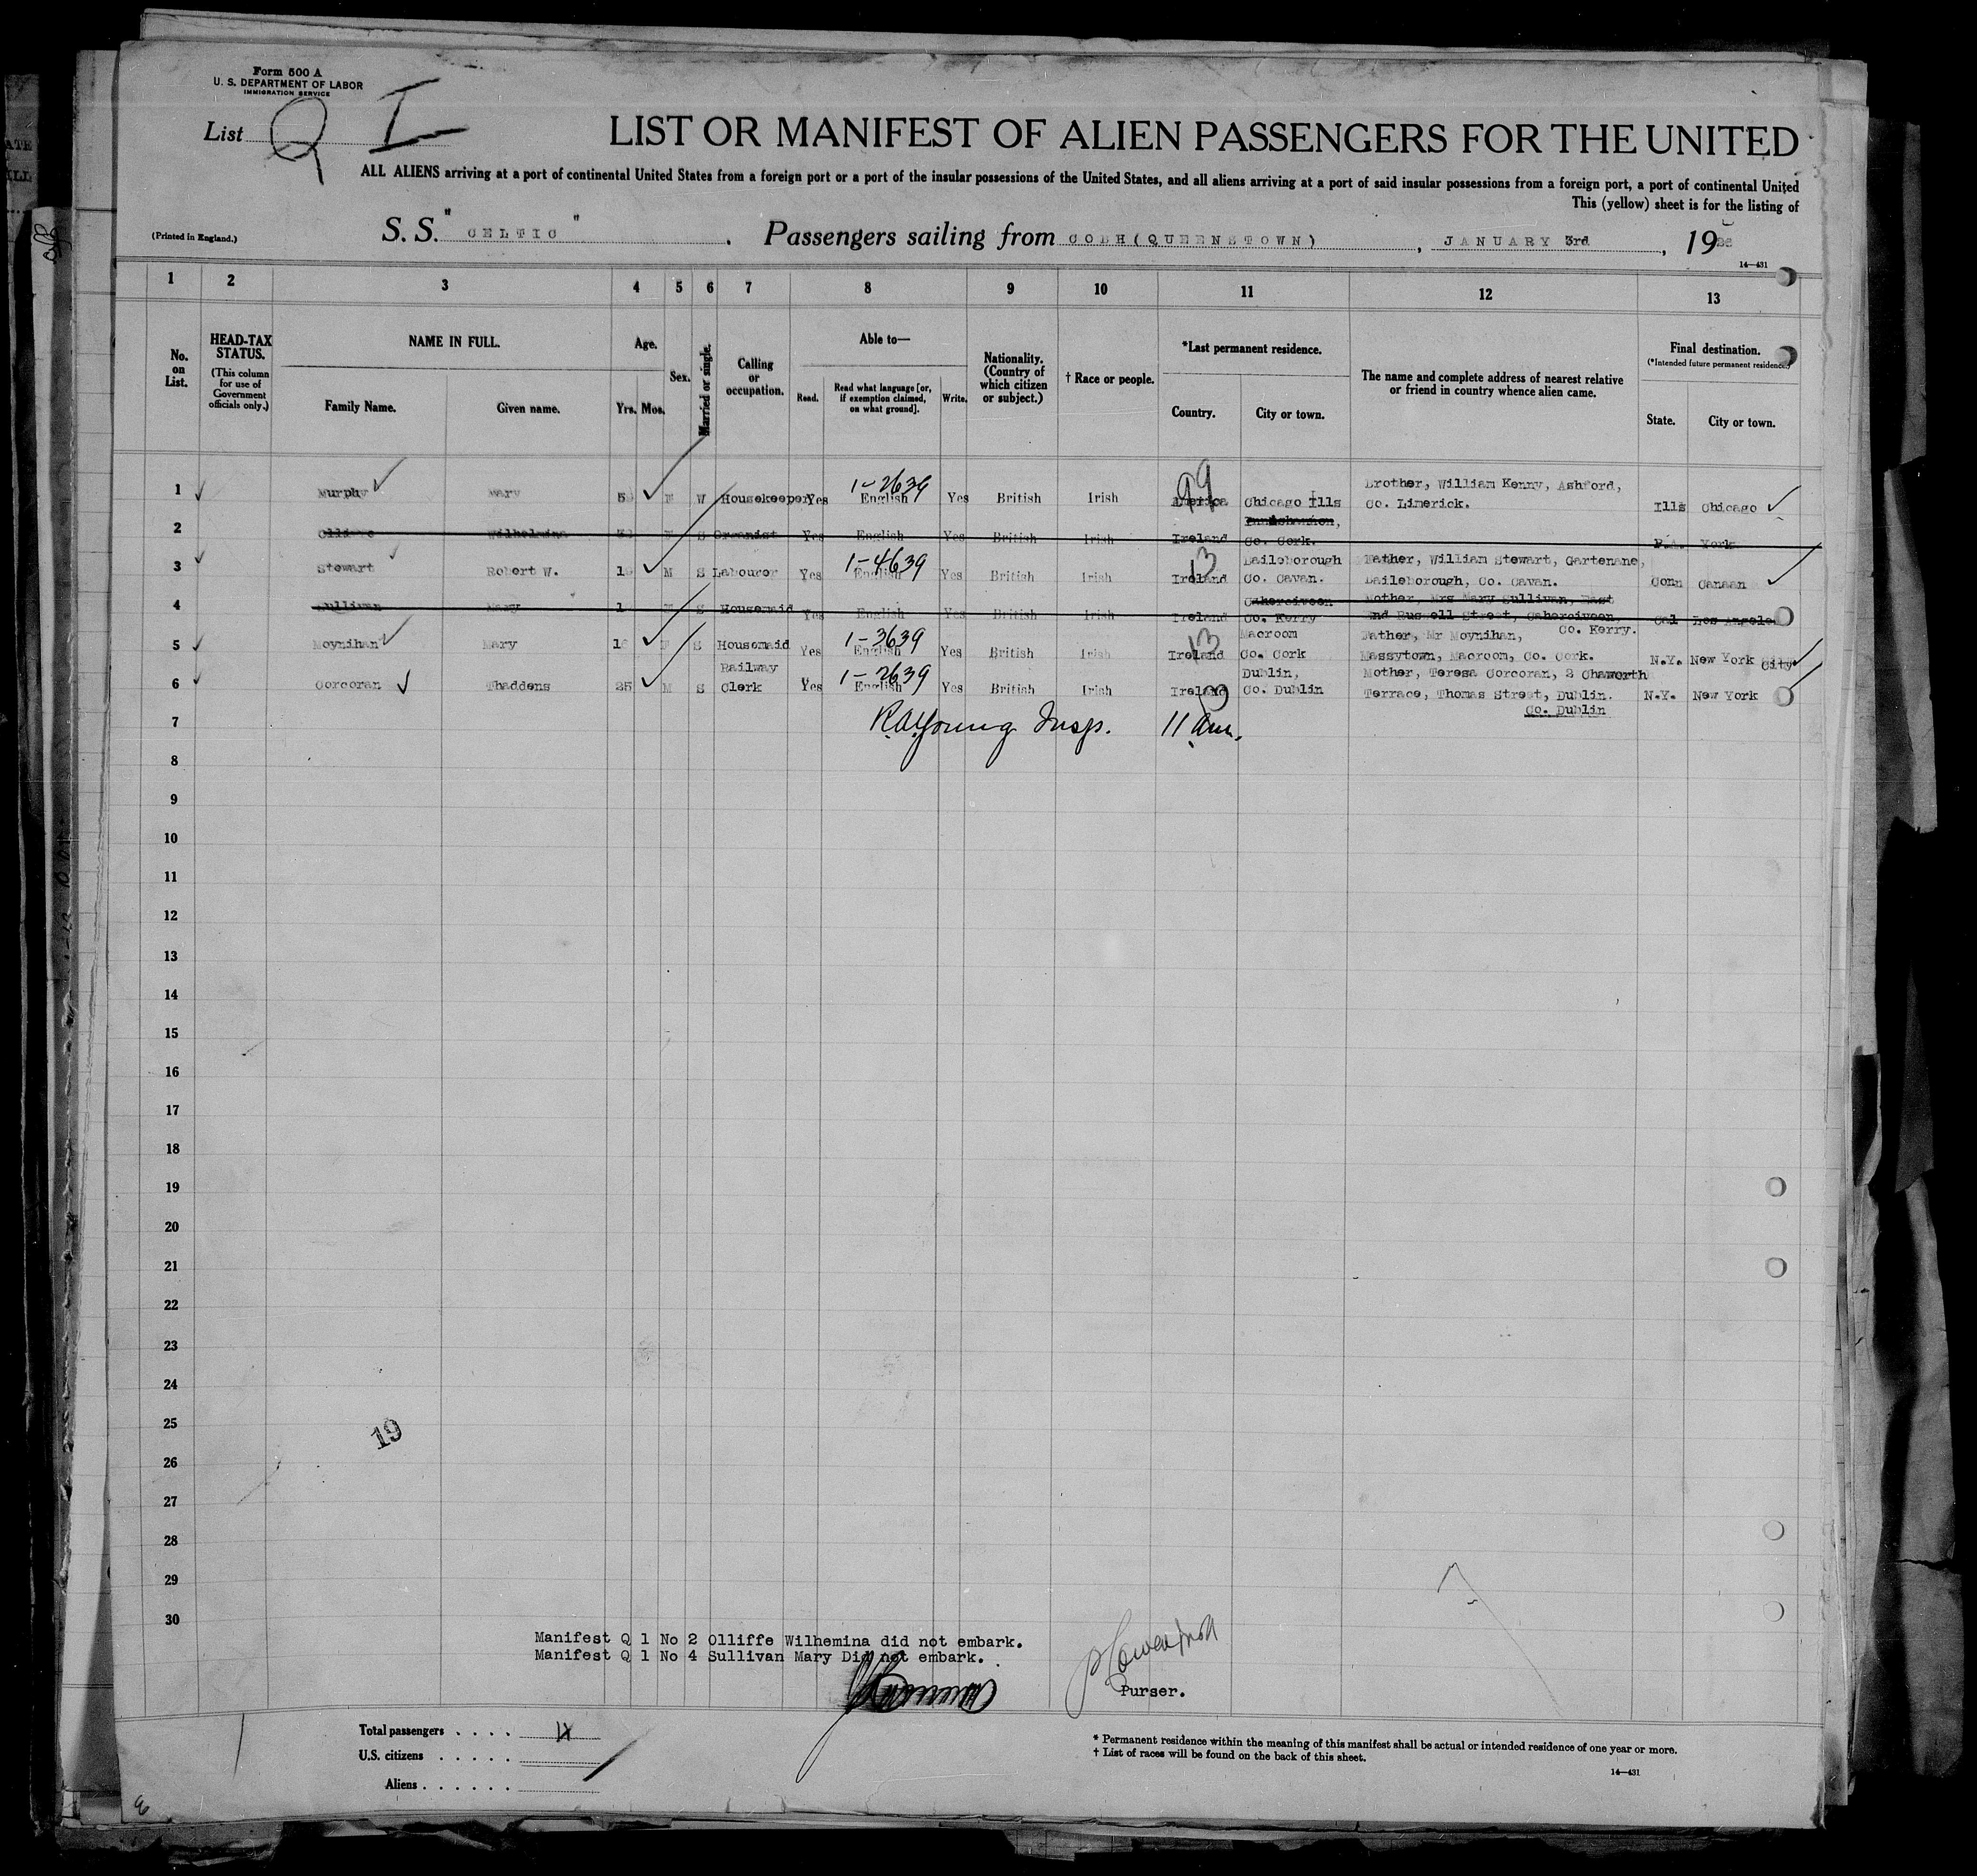 Form 500 A
U. S. DEPARTMENT OF LABOR
IMMIGRATION SERVICE
List Q I
LIST OR MANIFEST OF ALIEN PASSENGERS FOR THE UNITED
ALL ALIENS arriving at a port of continental United States from a foreign port or a port of the insular possessions of the United States, and all aliens arriving at a port of said insular possessions from a foreign port, a port of continental United
This (yellow) sheet is for the listing of
(Printed in England.)
S. S. "CELTIC". Passengers sailing from COBH(QUEENSTOWN), JANUARY 3rd, 19
14—431
1 2 3 4 5 6 7 8 9 10 11 12 13
No. on List.
HEAD-TAX STATUS.
(This column for use of Government officials only.)
NAME IN FULL.
Family Name. Given name.
Age.
Yrs. Mos.
Sex.
Married or single.
Calling or occupation.
Able to—
Read. Read what language [or, if exemption claimed, on what ground]. Write.
Nationality. (Country of which citizen or subject.)
† Race or people.
*Last permanent residence.
Country. City or town.
The name and complete address of nearest relative or friend in country whence alien came.
Final destination.
(*Intended future permanent residence.)
State. City or town.
1 Murphy Mary F W Housekeeper Yes 1-2639 English Yes British Irish 99 America Chicago Ills Brother, William Kenny, Ashford, Co. Limerick. Ills Chicago
2 Olliffe Wilhelmina F S Organist Yes English Yes British Irish Ireland Co. Cork. P.A. York
3 Stewart Robert W. M S Labourer Yes 1-4639 English Yes British Irish 13 Ireland Baileborough Co. Cavan. Father, William Stewart, Gartenane, Baileborough, Co. Cavan. Conn Canaan
4 Sullivan Mary F S Housemaid Yes English Yes British Irish Ireland Caherciveen Co. Kerry Mother, Mrs Mary Sullivan, East End Russell Street, Caherciveen, Co. Kerry. Cal Los Angeles
5 Moynihan Mary F S Housemaid Yes 1-3639 English Yes British Irish 13 Ireland Macroom Co. Cork Father, Mr Moynihan, Massytown, Macroom, Co. Cork. N.Y. New York City
6 Corcoran Thaddens 25 M S Railway Clerk Yes 1-2639 English Yes British Irish Ireland Dublin, Co. Dublin Mother, Teresa Corcoran, 2 Chaworth Terrace, Thomas Street, Dublin. Co. Dublin N.Y. New York
7 R.A. Young Insp. 11 am.
8
9
10
11
12
13
14
15
16
17
18
19
20
21
22
23
24
25
19
26
27
28
29
30
Manifest Q 1 No 2 Olliffe Wilhemina did not embark.
Manifest Q 1 No 4 Sullivan Mary Did not embark.
Purser.
Total passengers . . . . 4
U.S. citizens . . . . .
Aliens . . . . . .
* Permanent residence within the meaning of this manifest shall be actual or intended residence of one year or more.
† List of races will be found on the back of this sheet.
14—431